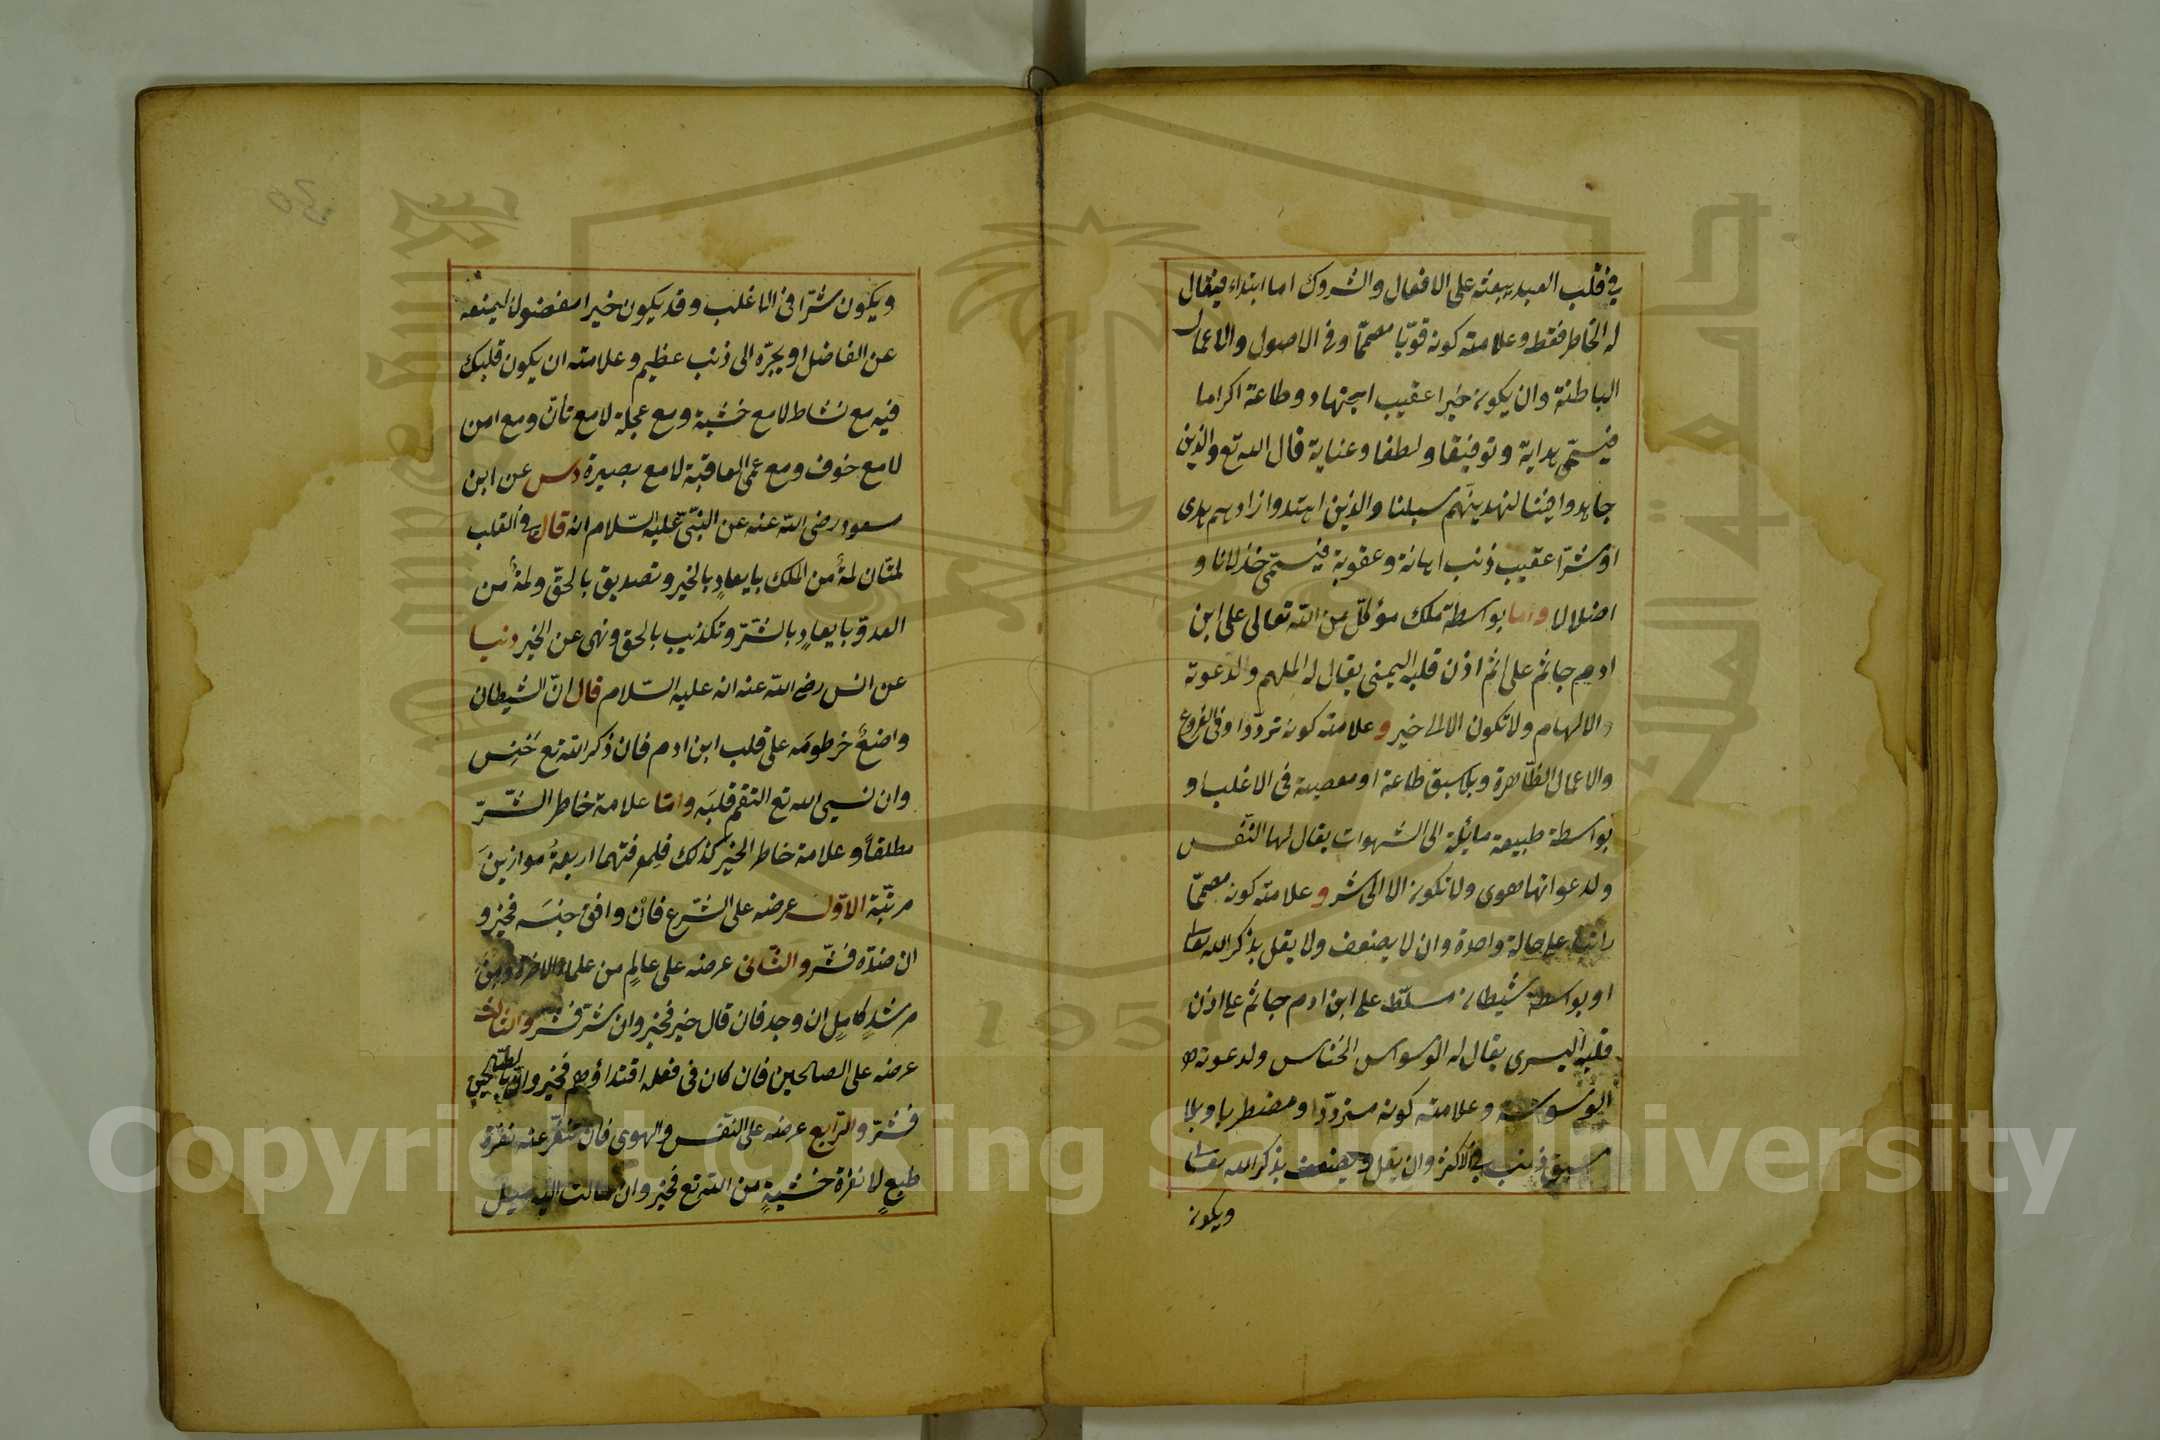 في قلب العبد يبعثه على الافعال والتروك اما ابتداء فيقال
له الخاطر فقط وعلامته كونه قويّا مصمّما وفي الاصول والاعمال
الباطنة وان يكون خيرا عقيب اجتهاد وطاعة اكراما
فيسمّى هداية وتوفيقا ولطفا وعناية قال الله تع والذين
جاهدوا فينا لنهدينّهم سبلنا والذين اهتدوا زادهم هدى
او شرّا عقيب ذنب اهانة وعقوبة فيسمّى خذلانا و
اضلالا واما بواسطة ملك مؤكّل من الله تعالى على ابن
ادم جاثم على اذن قلبه اليمنى يقال له الملهم ولدعوته
الالهام ولا تكون الا الى خير وعلامته كونه تردّدا وفي الفروع
والاعمال الظّاهرة وبلا سبق طاعة او معصية في الاغلب او
بواسطة طبيعة مائلة الى الشهوات يقال لها النّفس
ولدعوتها هوى ولا تكون الا الى شر وعلامته كونه مصمّما
راتبا على حالة واحدة وان لا يضعف ولا يقل بذكر الله تعالى
او بواسطة شيطان مسلّط على ابن ادم جاثم على اذن
قلبه اليسرى يقال له الوسواس الخنّاس ولدعوته
الوسوسة وعلامته كونه متردّدا ومضطربا وبلا
سبق ذنب في الاكثر وان يقل ويضعف بذكر الله تعالى
ويكون
ويكون شرّا في الاغلب وقد يكون خيرا مفضولا ليمنعه
عن الفاضل او يجرّه الى ذنب عظيم وعلامته ان يكون قلبك
فيه مع نشاط لا مع خشية ومع عجلة لا مع تأنّ ومع امن
لا مع خوف ومع عمى العاقبة لا مع بصيرة دس عن ابن
مسعود رضى الله عنه عن النبيّ عليه السّلام انه قال في القلب
لمتان لمّة من الملك بايعاد بالخير وتصديق بالحقّ ولمّة من
العدوّ بايعاد بالشّرّ وتكذيب بالحق ونهى عن الخير دنيا
عن انس رضى الله عنه انه عليه السّلام قال انّ الشيطان
واضع خرطومه على قلب ابن ادم فان ذكر الله تع خنس
وان نسى الله تع التقم قلبه وامّا علامة خاطر الشّرّ
مطلقا وعلامة خاطر الخير كذلك فلمعرفتهما اربعة موازين
مرتّبة الاوّل عرضه على الشّرع فان وافق جنسه فخير و
ان ضدّه فشرّ والثّانى عرضه على عالم من علماء الاخرة ومن
مرشد كامل ان وجد فان قال خير فخير وان شرّ فشرّ والثالث
عرضه على الصالحين فان كان في فعله اقتداؤهم فخير وان بالطالحين
فشرّ والرّابع عرضه على النّفس والهوى فان تنفر عنه نفرة
طبع لا نفرة خشية من الله تع فخير وان مالت اليه ميل